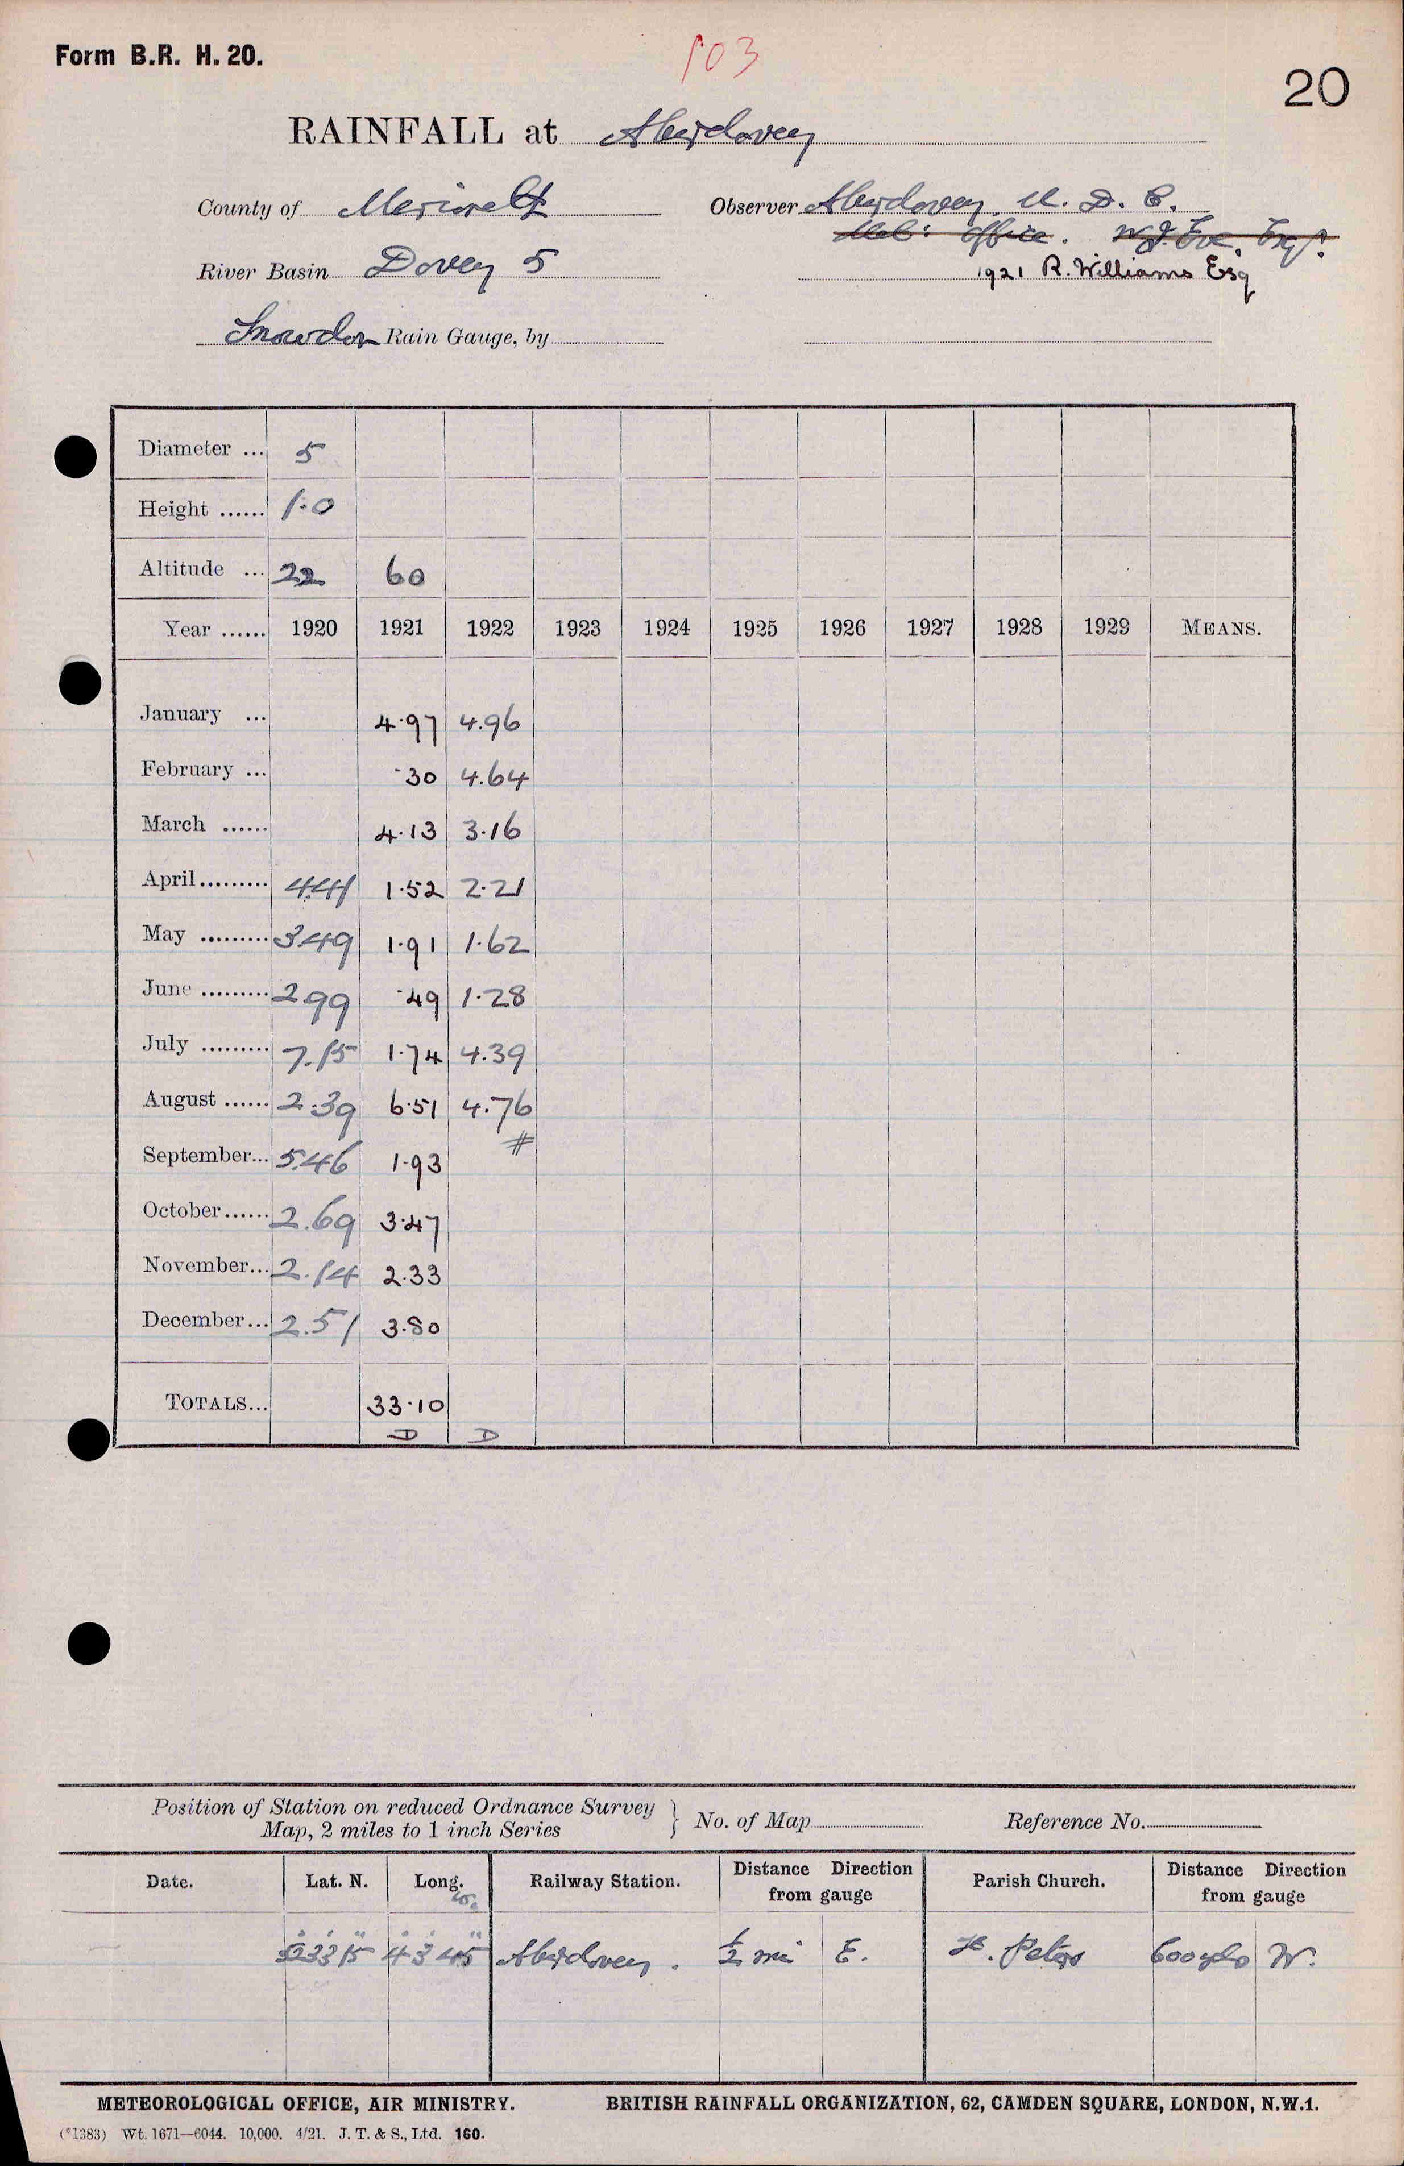 Form B.R. H. 20.
103
20
RAINFALL at Aberdovey
County of Merioneth
Observer Aberdovey U. D. C.
Met: Office. W J Eve. Esqr.
River Basin Dovey 5
1921 R. Williams Esq
Snowdon Rain Gauge, by
Diameter ... 5
Height ...... 1.0
Altitude ... 22 60
Year ...... 1920 1921 1922 1923 1924 1925 1926 1927 1928 1929 MEANS.
January ... 4.97 4.96
February ... .30 4.64
March ...... 4.13 3.16
April ......... 4.41 1.52 2.21
May ......... 3.49 1.91 1.62
June ......... 2.99 .49 1.28
July ......... 7.15 1.74 4.39
August ...... 2.39 6.51 4.76
#
September... 5.46 1.93
October...... 2.69 3.47
November... 2.14 2.33
December... 2.51 3.80
TOTALS... 33.10
D D
Position of Station on reduced Ordnance Survey
Map, 2 miles to 1 inch Series } No. of Map Reference No.
Date. Lat. N. Long. W. Railway Station. Distance Direction from gauge Parish Church. Distance Direction from gauge
52° 33' 15" 4° 3' 45" Aberdovey. ½ mi E. St. Peters 600 yds W.
METEOROLOGICAL OFFICE, AIR MINISTRY. BRITISH RAINFALL ORGANIZATION, 62, CAMDEN SQUARE, LONDON, N.W.1.
(*1383) Wt. 1671—6044. 10,000. 4/21. J. T. & S., Ltd. 160.